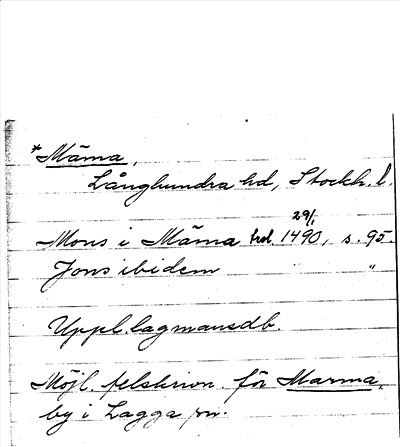 *Mäma,
Långhundra hd, Stockh. l.
29/1
Mons i Mäma hd. 1490, s. 95.
Jons ibidem "
Uppl. lagmansdb.
Möjl. felskrivn. för Marma,
by i Lagga sn.